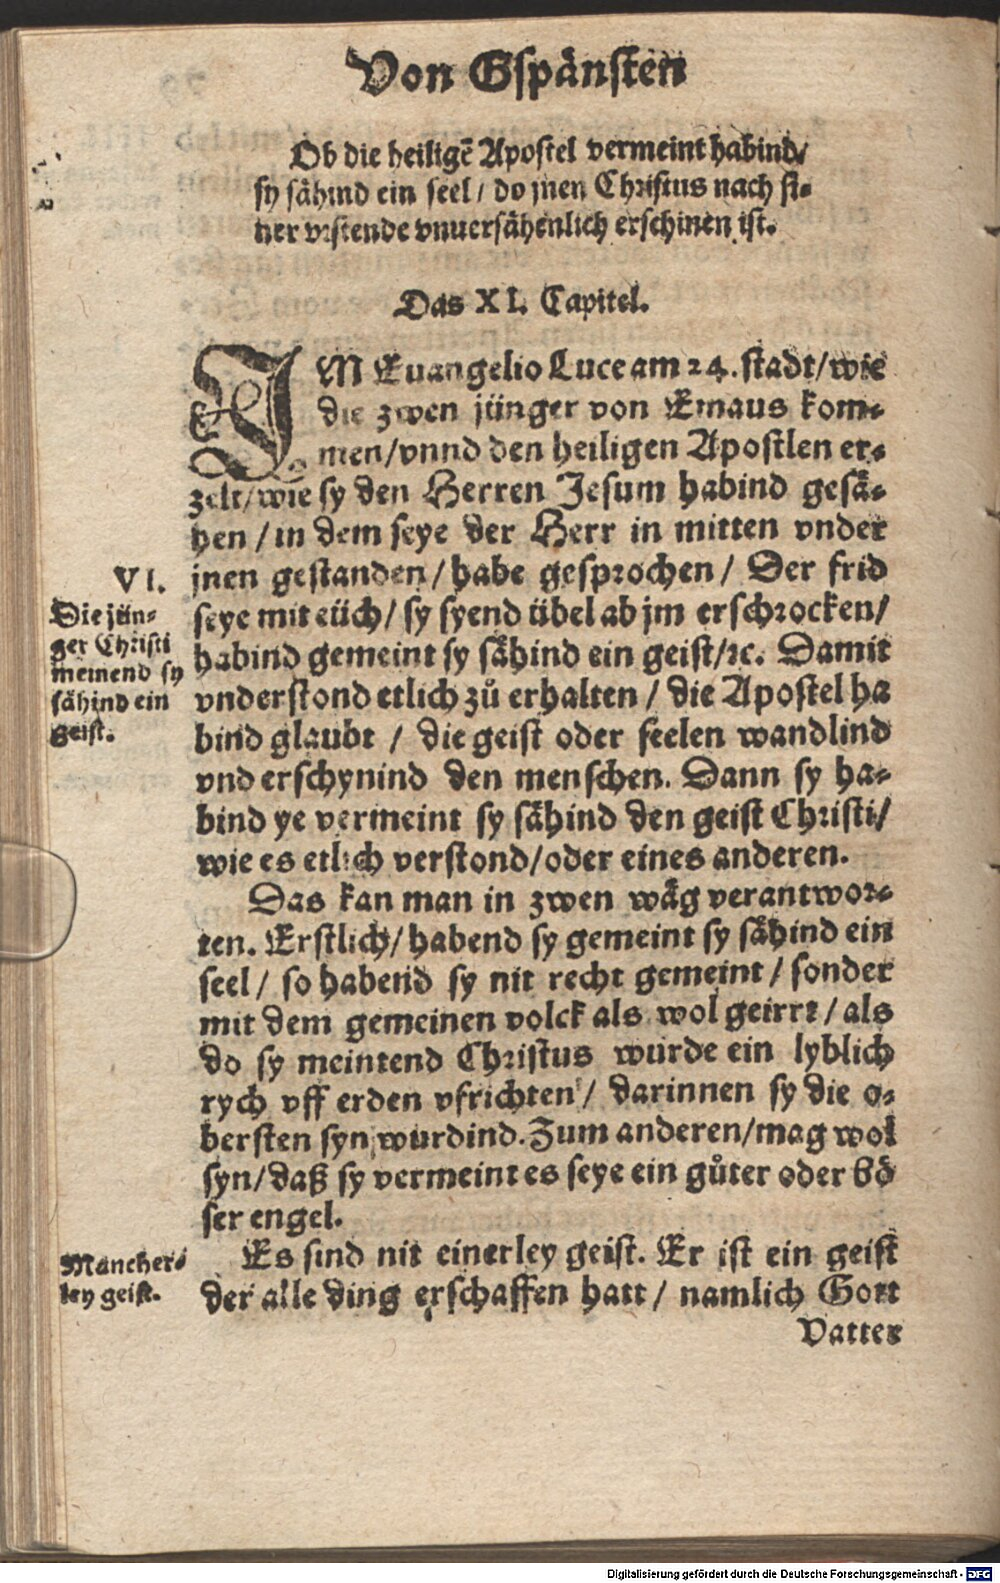 Von Gspänsten
Ob die heiligē Apostel vermeint habind/
sy sähind ein seel / do jnen Christus nach si-
ner vrstende vnuersähenlich erschinen ist.
Das XL. Capitel.
IM Euangelio Luce am 24. stadt/wie
die zwen jünger von Emaus kom-
men/vnnd den heiligen Apostlen er-
zelt/wie sy den Herren Jesum habind gesä-
hen / in dem seye der Herr in mitten vnder
VI.
jnen gestanden / habe gesprochen / Der frid
seye mit eüch / sy syend übel ab jm erschrocken/
habind gemeint sy sähind ein geist/ꝛc. Damit
vnderstond etlich zů erhalten / die Apostel ha
bind glaubt / die geist oder seelen wandlind
vnd erschynind den menschen. Dann sy ha-
bind ye vermeint sy sähind den geist Christi/
wie es etlich verstond/oder eines anderen.
Die jün-
ger Christi
meinend sy
sähind ein
geist.
Das kan man in zwen wäg verantwor-
ten. Erstlich/habend sy gemeint sy sähind ein
seel / so habend sy nit recht gemeint / sonder
mit dem gemeinen volck als wol geirrt / als
do sy meintend Christus wurde ein lyblich
rych vff erden vfrichten / darinnen sy die o-
bersten syn wurdind. Zum anderen/mag wol
syn/daß sy vermeint es seye ein gůter oder bö
ser engel.
Mancher-
ley geist.
Es sind nit einerley geist. Er ist ein geist
der alle ding erschaffen hatt / namlich Gott
Vatter
Digitalisierung gefördert durch die Deutsche Forschungsgemeinschaft - DFG